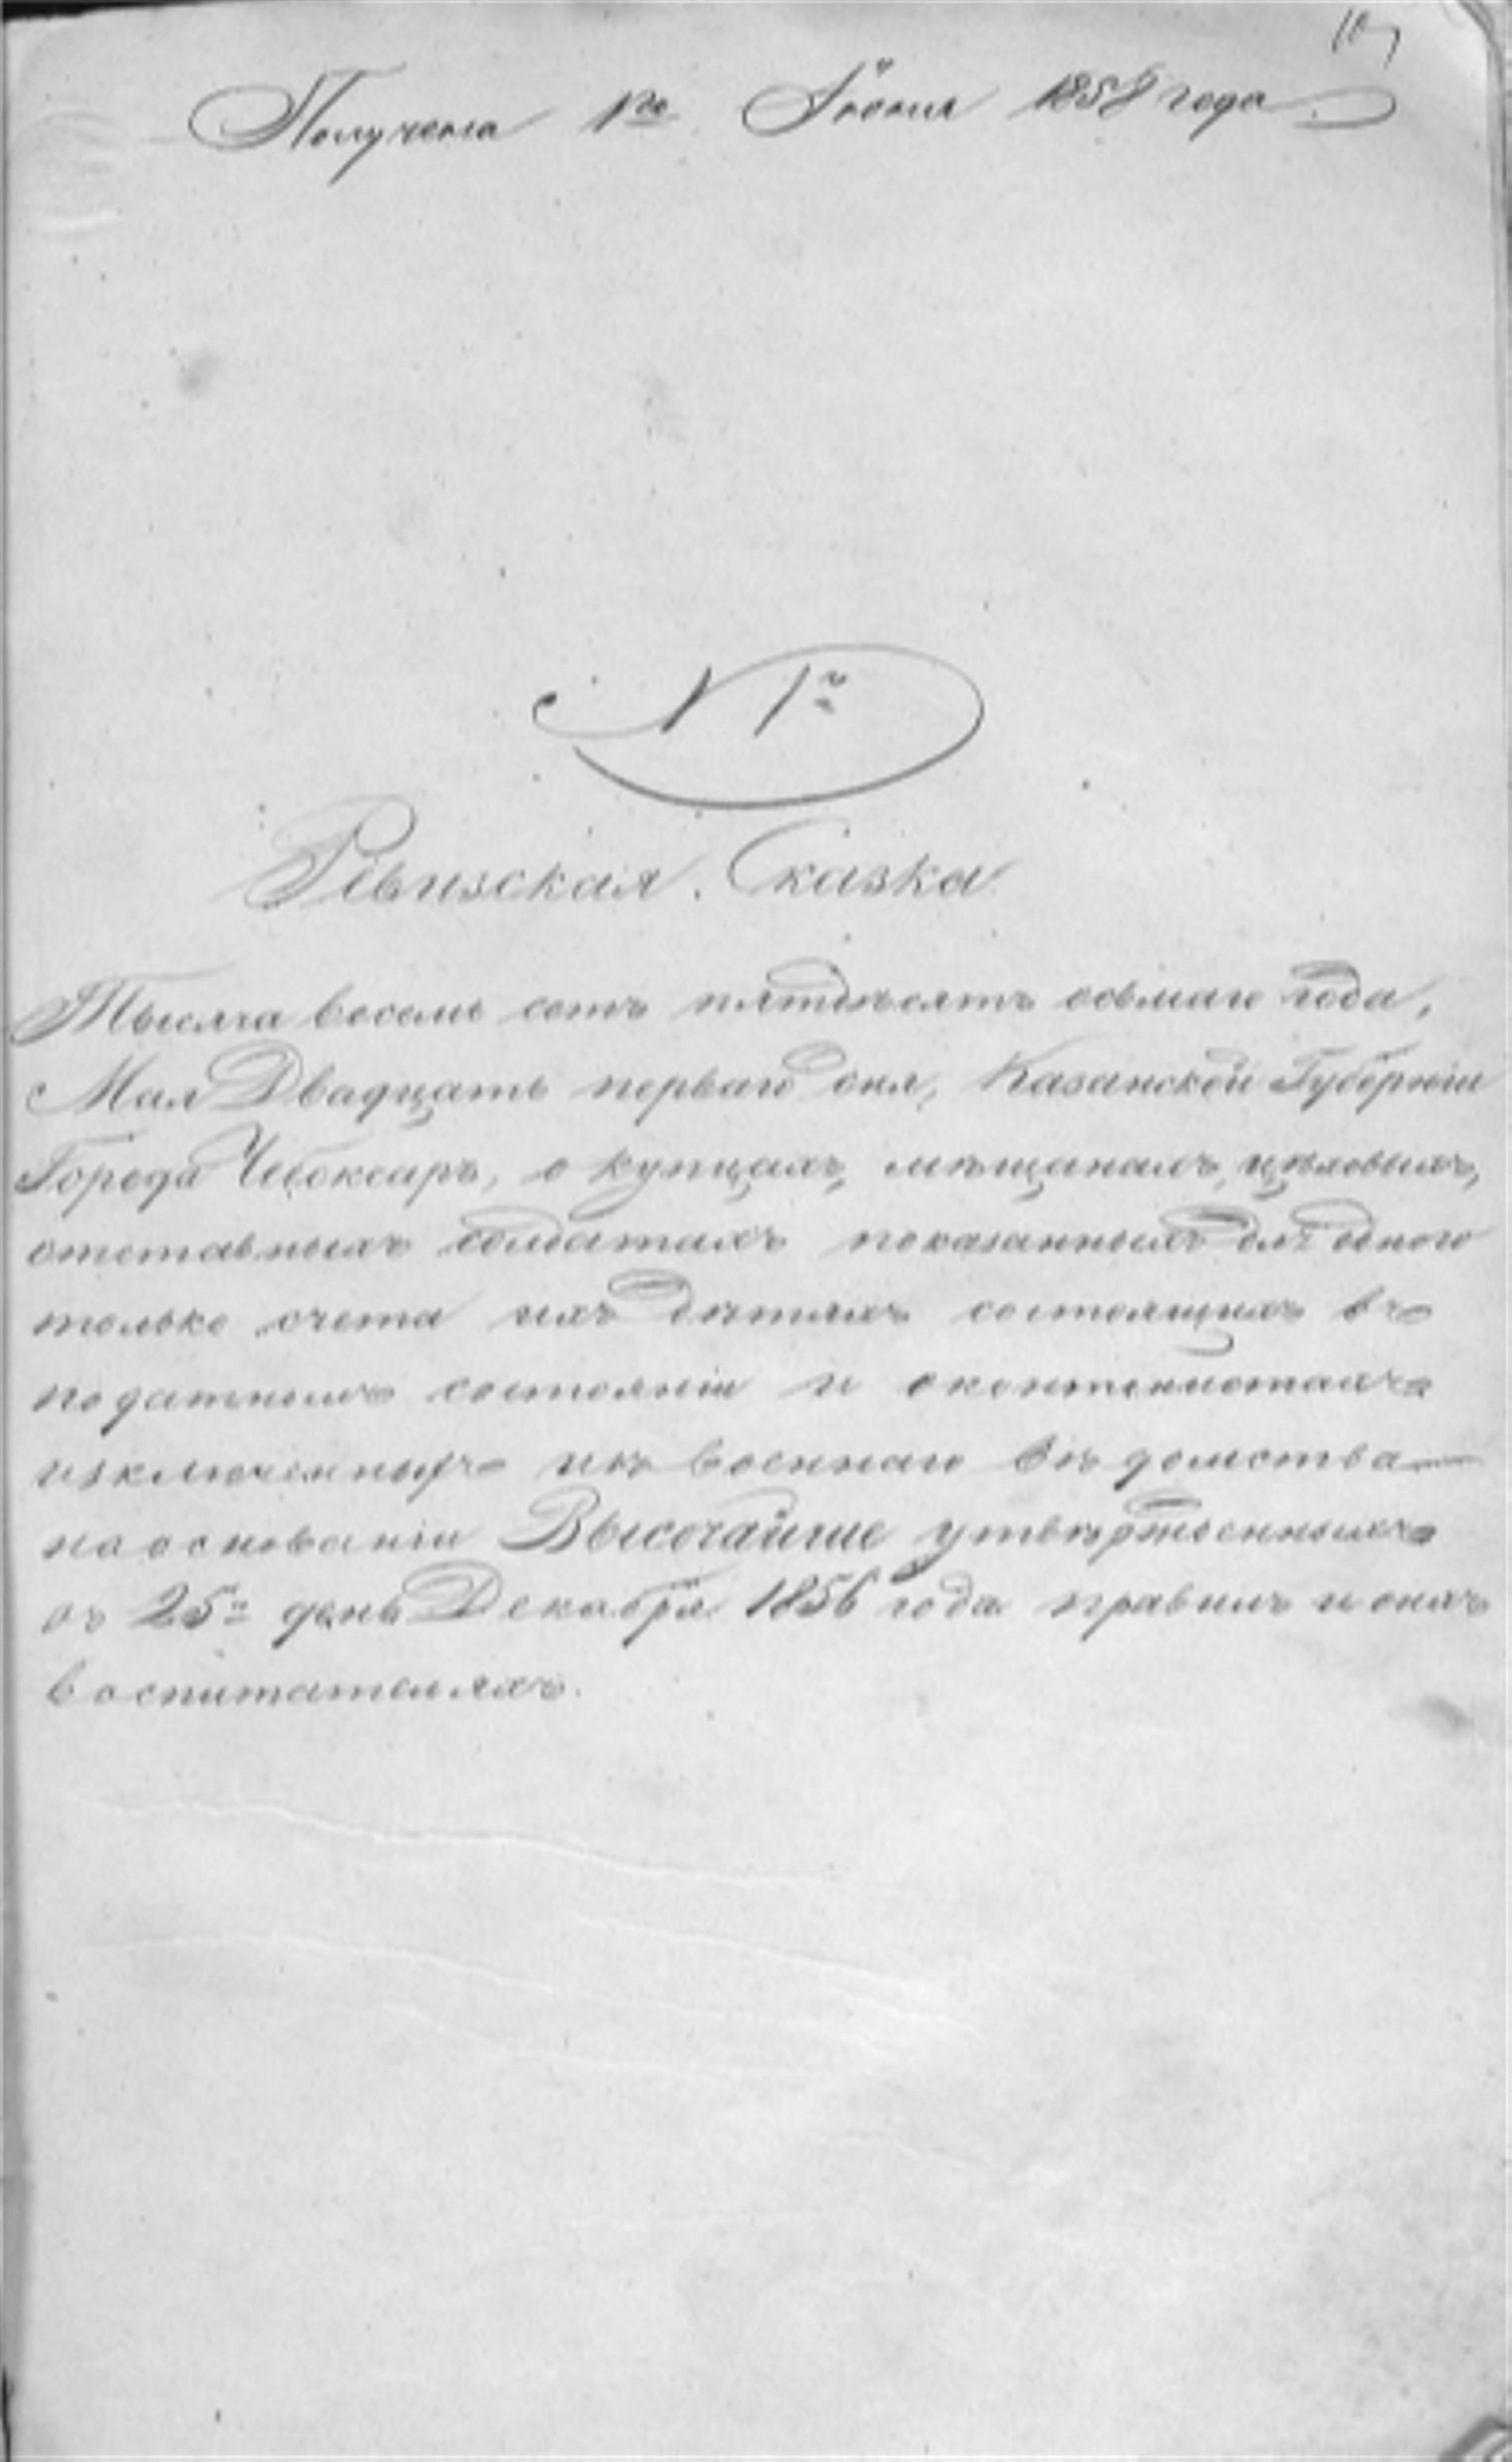 Получена 1го Іюня 1858 года
N 1й
Ревизская Сказка
Тысяча восемь сотъ пятдесятъ осьмаго года,
Мая Двадцать перваго дня, Казанской Губерніи
Города Чебоксаръ, о купцахъ, мѣщанахъ, цѣховыхъ,
отставныхъ солдатахъ показанныхъ для одного
только счета ихъ дѣтяхъ состоящихъ въ
податномъ состояніи и о кантонистахъ
изключенныхъ изъ военнаго вѣдомства
на основаніи Высочайше утвержденныхъ
въ 25й день Декабря 1856 года правилъ и онихъ
воспитателяхъ.